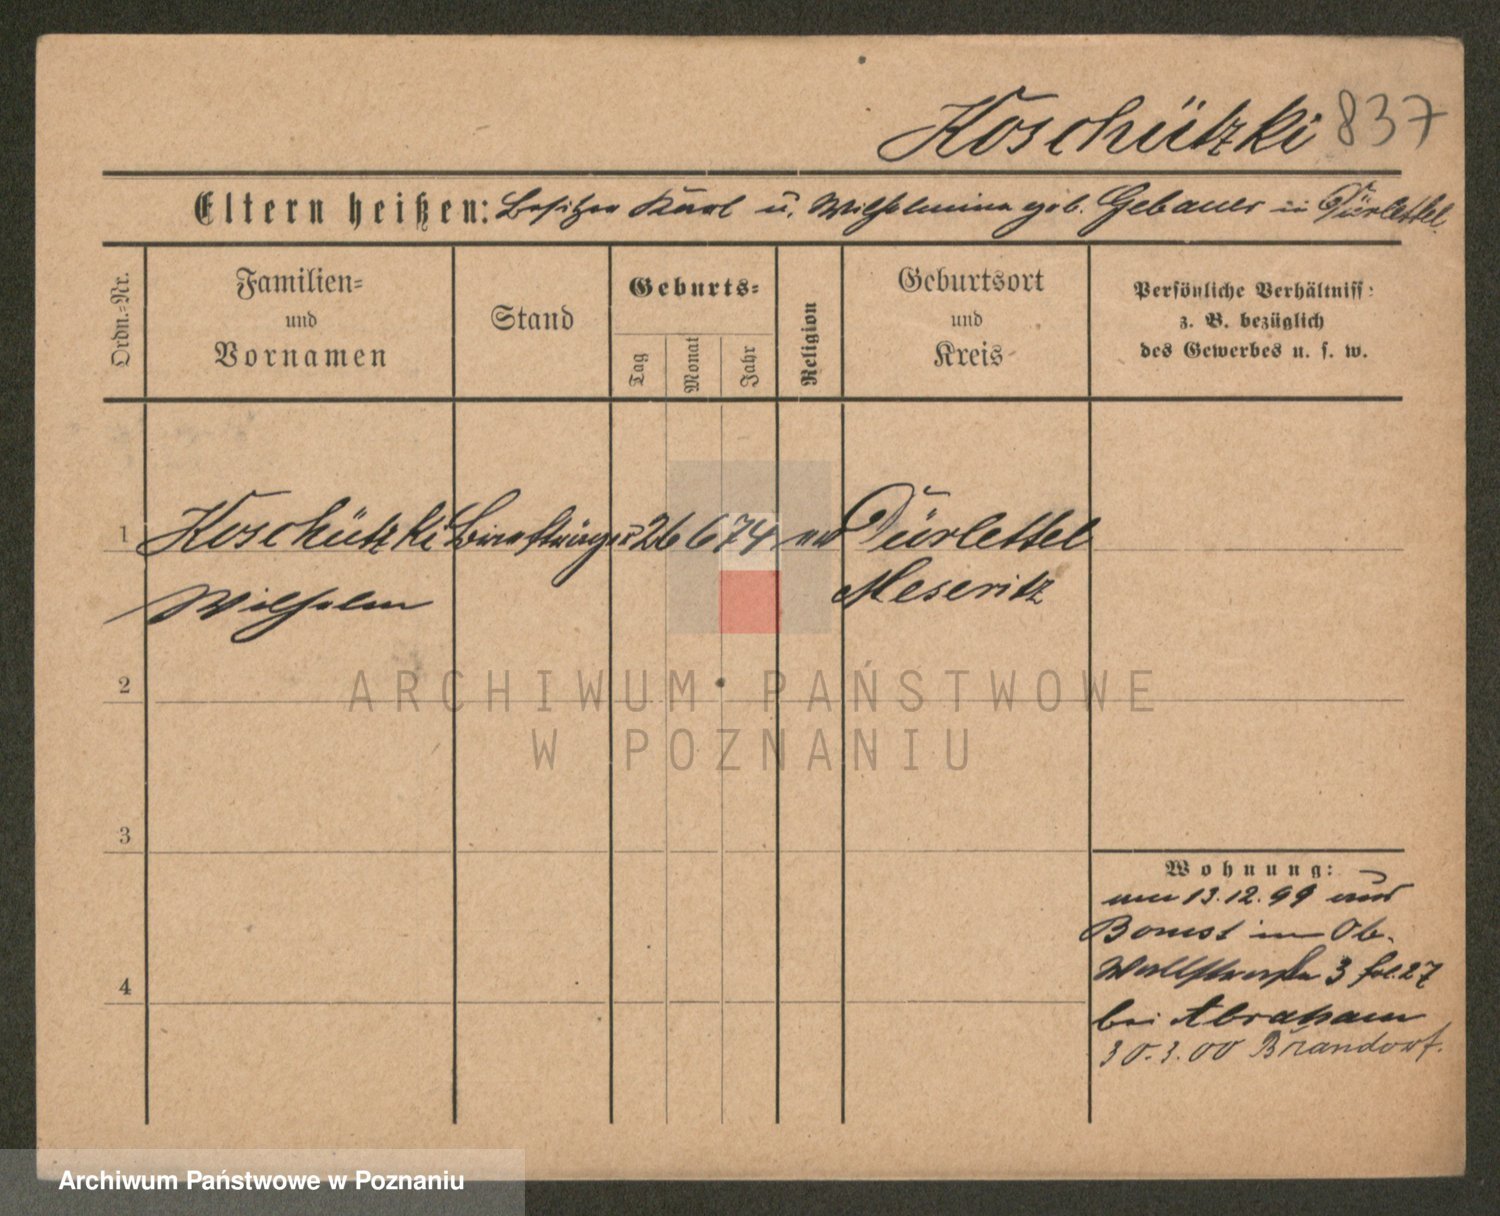 Koschützki 837
Eltern heißen: Besitzer Karl u. Wilhelmine geb. Gebauer in Dürlettel
Ordn.-Nr.
Familien-
und
Vornamen
Stand
Geburts-
Tag
Monat
Jahr
Religion
Geburtsort
und
Kreis
Persönliche Verhältniss:
z. B. bezüglich
des Gewerbes u. s. w.
1 Koschützki Briefträger 26 6 74 ev Dürlettel
Wilhelm Meseritz
2
ARCHIWUM PAŃSTWOWE
W POZNANIU
3
Wohnung:
13.12.99
Bomst Ob.
3 fol. 27
4
bei Abraham
30.3.00 Brandorf.
Archiwum Państwowe w Poznaniu